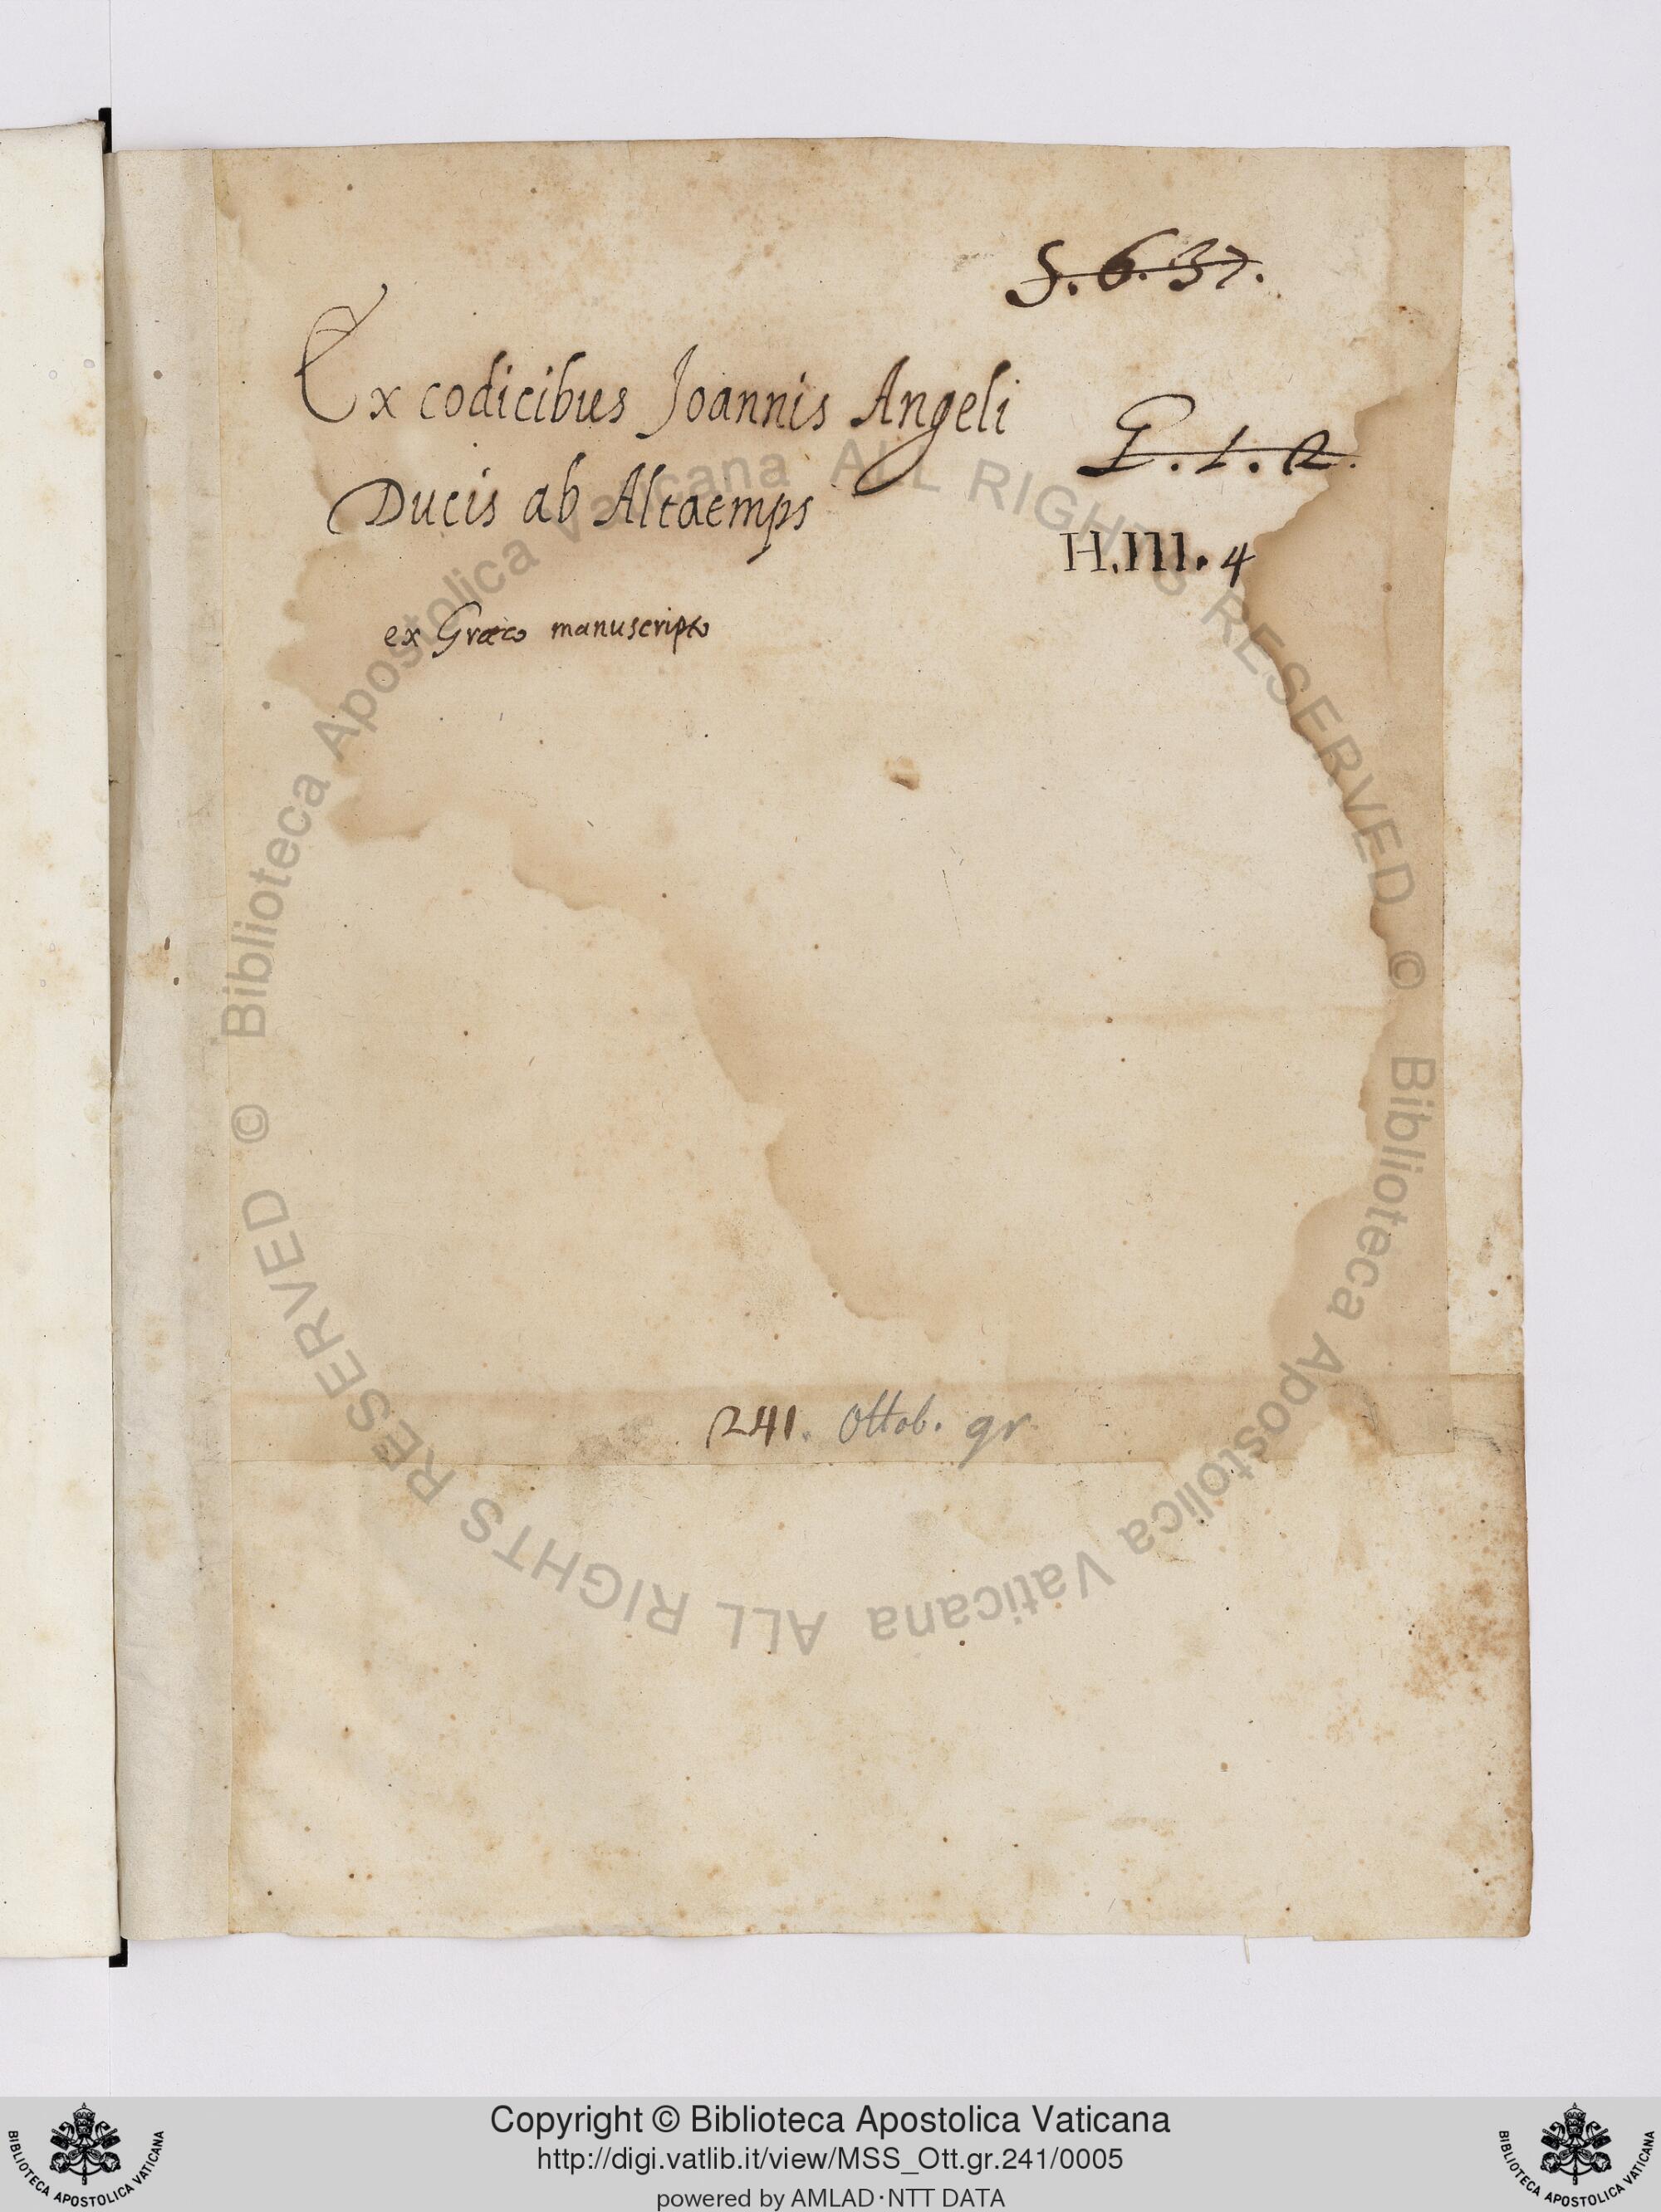 S. 6. 37.
Ex codicibus Joannis Angeli
Ducis ab Altaemps
G. 1. 2.
H.III. 4
ex Græco manuscripto
241. Ottob. gr.
© Biblioteca Apostolica Vaticana ALL RIGHTS RESERVED
© Biblioteca Apostolica Vaticana ALL RIGHTS RESERVED
Copyright © Biblioteca Apostolica Vaticana
http://digi.vatlib.it/view/MSS_Ott.gr.241/0005
powered by AMLAD·NTT DATA
BIBLIOTECA APOSTOLICA VATICANA
BIBLIOTECA APOSTOLICA VATICANA